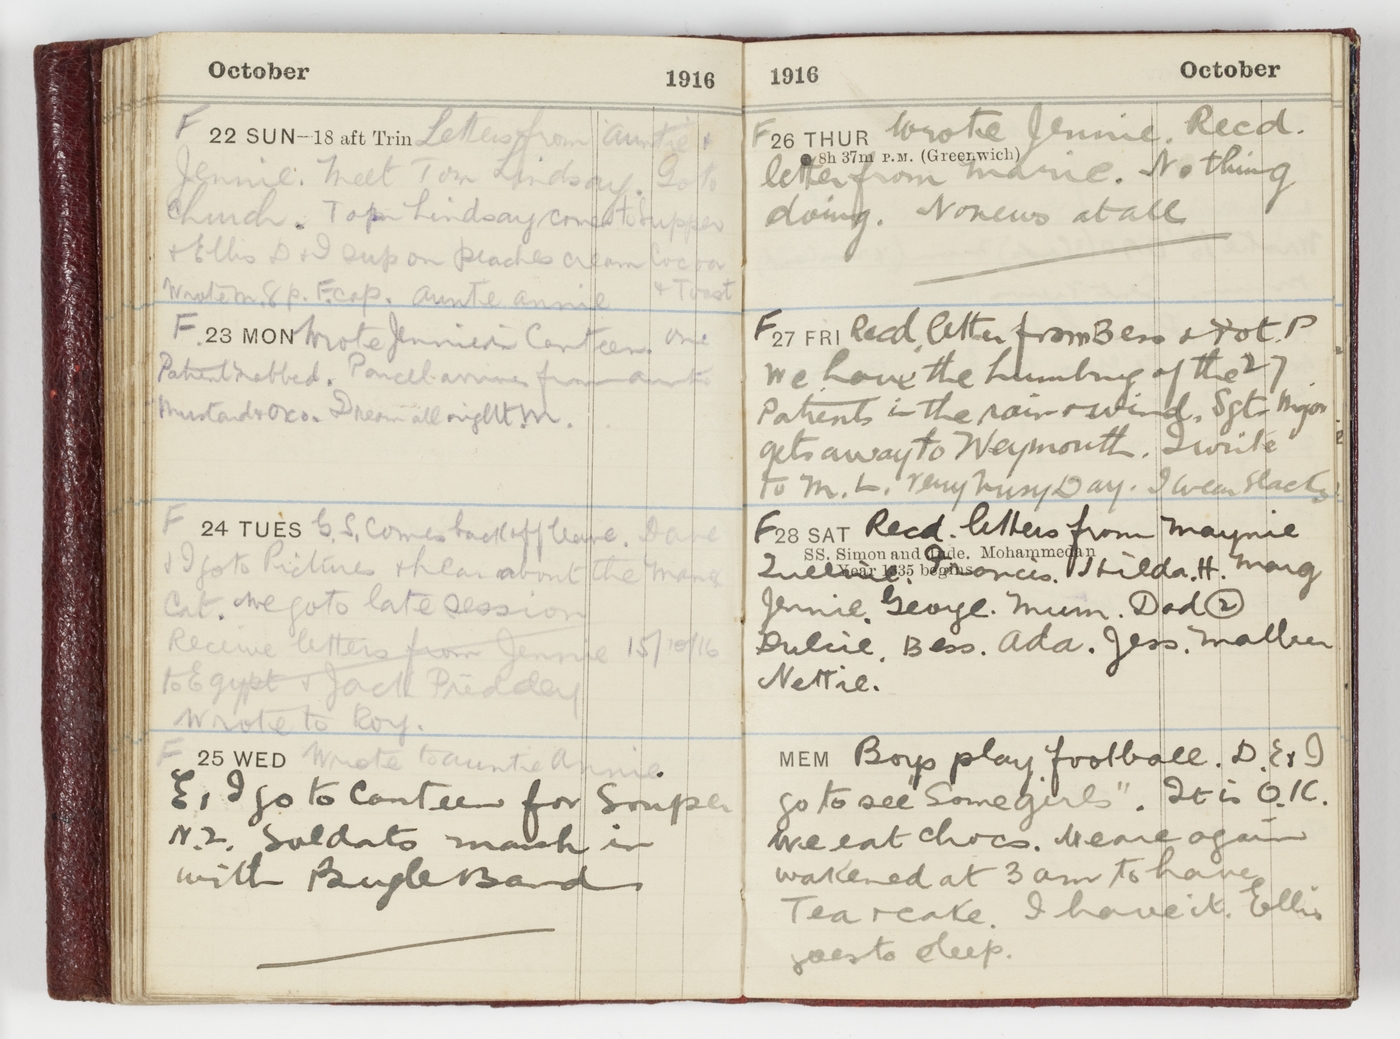 October 1916
F 22 SUN—18 aft Trin Letters from Auntie +
Jennie. Meet Tom Lindsay. Go to
Church. Tom Lindsay comes to Supper
+ Ellis D + I sup on peaches cream Cocoa
Wrote M. 8 p. F.cap. Auntie Annie + Toast
F. 23 MON Wrote Jennie in Canteen. One
Patient nabbed. Parcel arrives from Aunt
Mustard + Oxo. Dream all night M.
F 24 TUES G.S. comes back off leave. Dave
+ I go to Pictures + hear about the Mans
Cat. We go to late session
Receive letters from Jennie 15/10/16
to Egypt + Jack Priddey
Wrote to Roy.
F 25 WED Wrote to Auntie Annie
E, I go to Canteen for Souper
N.Z. Soldats march in
with Bugle Band
1916 October
F 26 THUR Wrote Jennie. Recd.
● 8h 37m P.M. (Greenwich)
letter from Marie. Nothing
doing. No news at all
F 27 FRI Recd. letter from Bess + Dot. P
We have the humbug of the 27
Patients in the rain + wind. Sgt Major
gets away to Weymouth. I write
to M. L. Very busy Day. I wear Slacks
F 28 SAT Recd. letters from Maynie
SS. Simon and Jude. Mohammedan
Year 1335 begins
Queenie. Francis. Hilda. H. Marg
Jennie. George. Mum. Dad ②
Dulcie. Bess. Ada. Jess.
Nettie.
MEM Boys play football. D. E + I
go to see "Some girls". It is O.K.
We eat chocs. We are again
wakened at 3 am to have
Tea + cake. I have it. Ellis
goes to sleep.